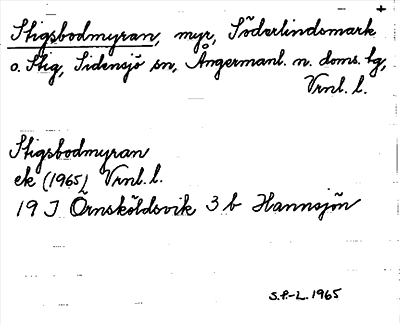 Stigsbodmyran, myr, Söderlindsmark
o. Stig, Sidensjö sn, Ångermanl. n. doms. lg,
Vrnl. l.
Stigsbodmyran
ek (1965) Vrnl. l.
19 J Örnsköldsvik 3 b Hannsjön
S.P.-L. 1965